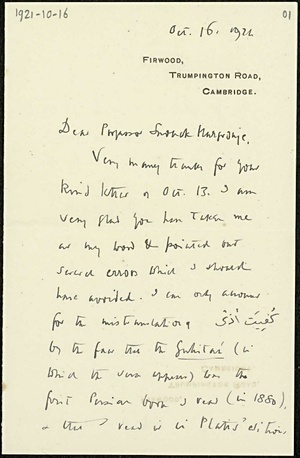 1921-10-16
01
Oct. 16. 1921
FIRWOOD,
TRUMPINGTON ROAD,
CAMBRIDGE.
Dear Professor Snouck Hurgronje,
Very many thanks for your
kind letter of Oct. 13. I am
very glad you have taken me
at my word & pointed out
several errors which I should
have avoided. I can only account
for the mistranslation of كُفِيتَ أَذًى
by the fact that the Gulistán (in
which the verse appears) was the
first Persian book I read (in 1880),
& that I read it in Platts' edition